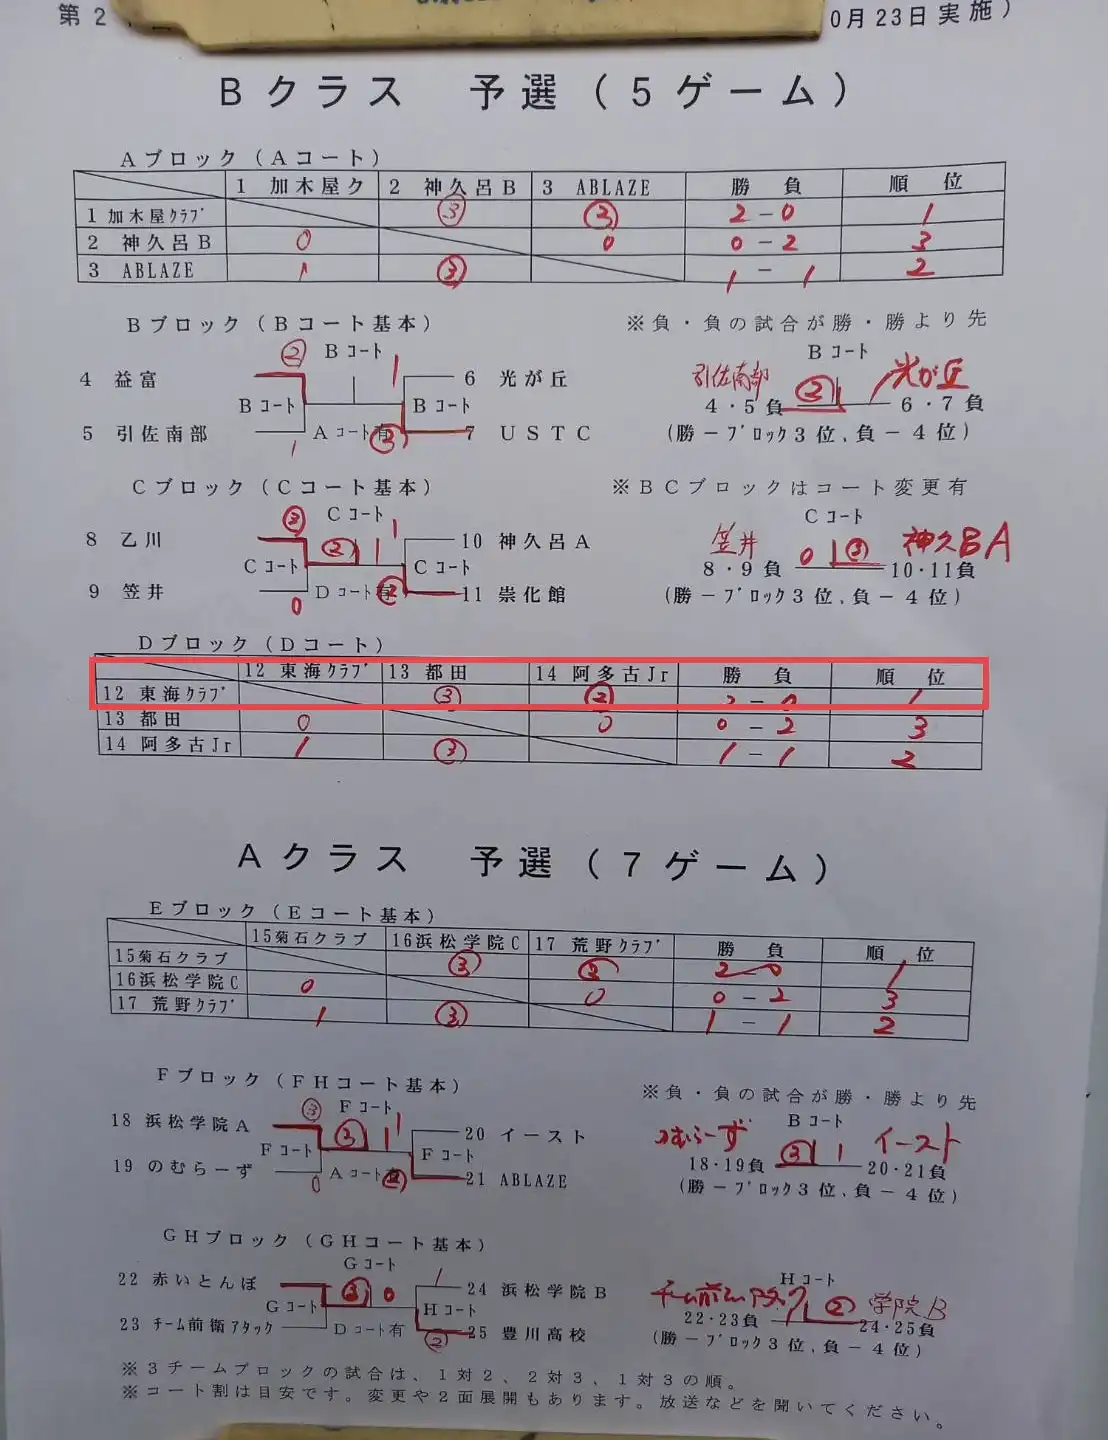 第2
0月23日実施)
Bクラス 予選(5ゲーム)
Aブロック(Aコート)
1 加木屋ク 2 神久呂B 3 ABLAZE 勝 負 順 位
1 加木屋クラブ ③ ③ 2-0 1
2 神久呂B 0 0 0-2 3
3 ABLAZE 1 ③ 1-1 2
Bブロック(Bコート基本) ※負・負の試合が勝・勝より先
② Bコート 1 Bコート
4 益富 6 光が丘 引佐南部 ② 1 光が丘
Bコート Bコート 4・5負 6・7負
5 引佐南部 1 Aコート有 ③ 7 USTC (勝-ブロック3位、負-4位)
Cブロック(Cコート基本) ※BCブロックはコート変更有
③ Cコート 1 Cコート
8 乙川 ② 1 10 神久呂A 笠井 0 ③ 神久呂A
Cコート Cコート 8・9負 10・11負
9 笠井 0 Dコート有 ② 11 崇化館 (勝-ブロック3位、負-4位)
Dブロック(Dコート)
12 東海クラブ 13 都田 14 阿多古Jr 勝 負 順 位
12 東海クラブ ③ ② 2-0 1
13 都田 0 0 0-2 3
14 阿多古Jr 1 ③ 1-1 2
Aクラス 予選(7ゲーム)
Eブロック(Eコート基本)
15菊石クラブ 16浜松学院C 17 荒野クラブ 勝 負 順 位
15菊石クラブ ③ ③ 2-0 1
16浜松学院C 0 0 0-2 3
17 荒野クラブ 1 ③ 1-1 2
Fブロック(FHコート基本) ※負・負の試合が勝・勝より先
③ Fコート 1 Bコート
18 浜松学院A ③ 1 20 イースト のむらーず ③ 1 イースト
Fコート Fコート 18・19負 20・21負
19 のむらーず 0 Aコート ② 21 ABLAZE (勝-ブロック3位、負-4位)
GHブロック(GHコート基本)
Gコート Hコート
22 赤いとんぼ ③ 0 1 24 浜松学院B チーム前 ② 学院B
Gコート Hコート 22・23負 24・25負
23 チーム前衛アタック Dコート有 ② 25 豊川高校 (勝-ブロック3位、負-4位)
※3チームブロックの試合は、1対2、2対3、1対3の順。
※コート割は目安です。変更や2面展開もあります。放送などを聞いてください。